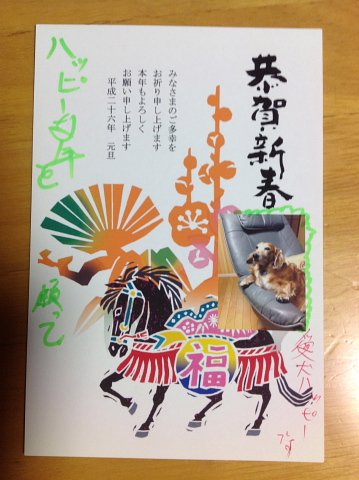 恭賀新春
みなさまのご多幸を
お祈り申し上げます
本年もよろしく
お願い申し上げます
平成二十六年 元旦
ハッピー
年を
願って
福
愛犬ハッピー
です